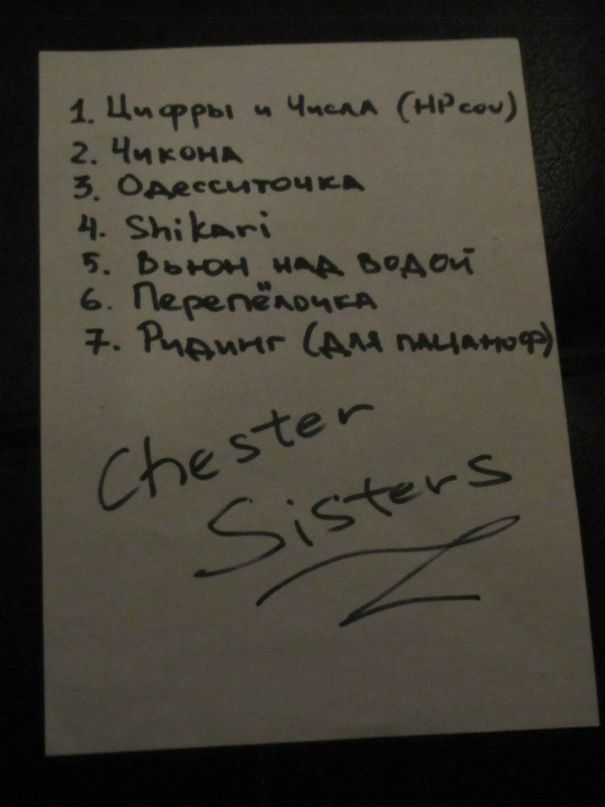 1. Цифры и Числа (HP cov)
2. Чикона
3. Одесситочка
4. Shikari
5. Вьюн над водой
6. Перепёлочка
7. Ридинг (для пацаноф)
Chester
Sisters